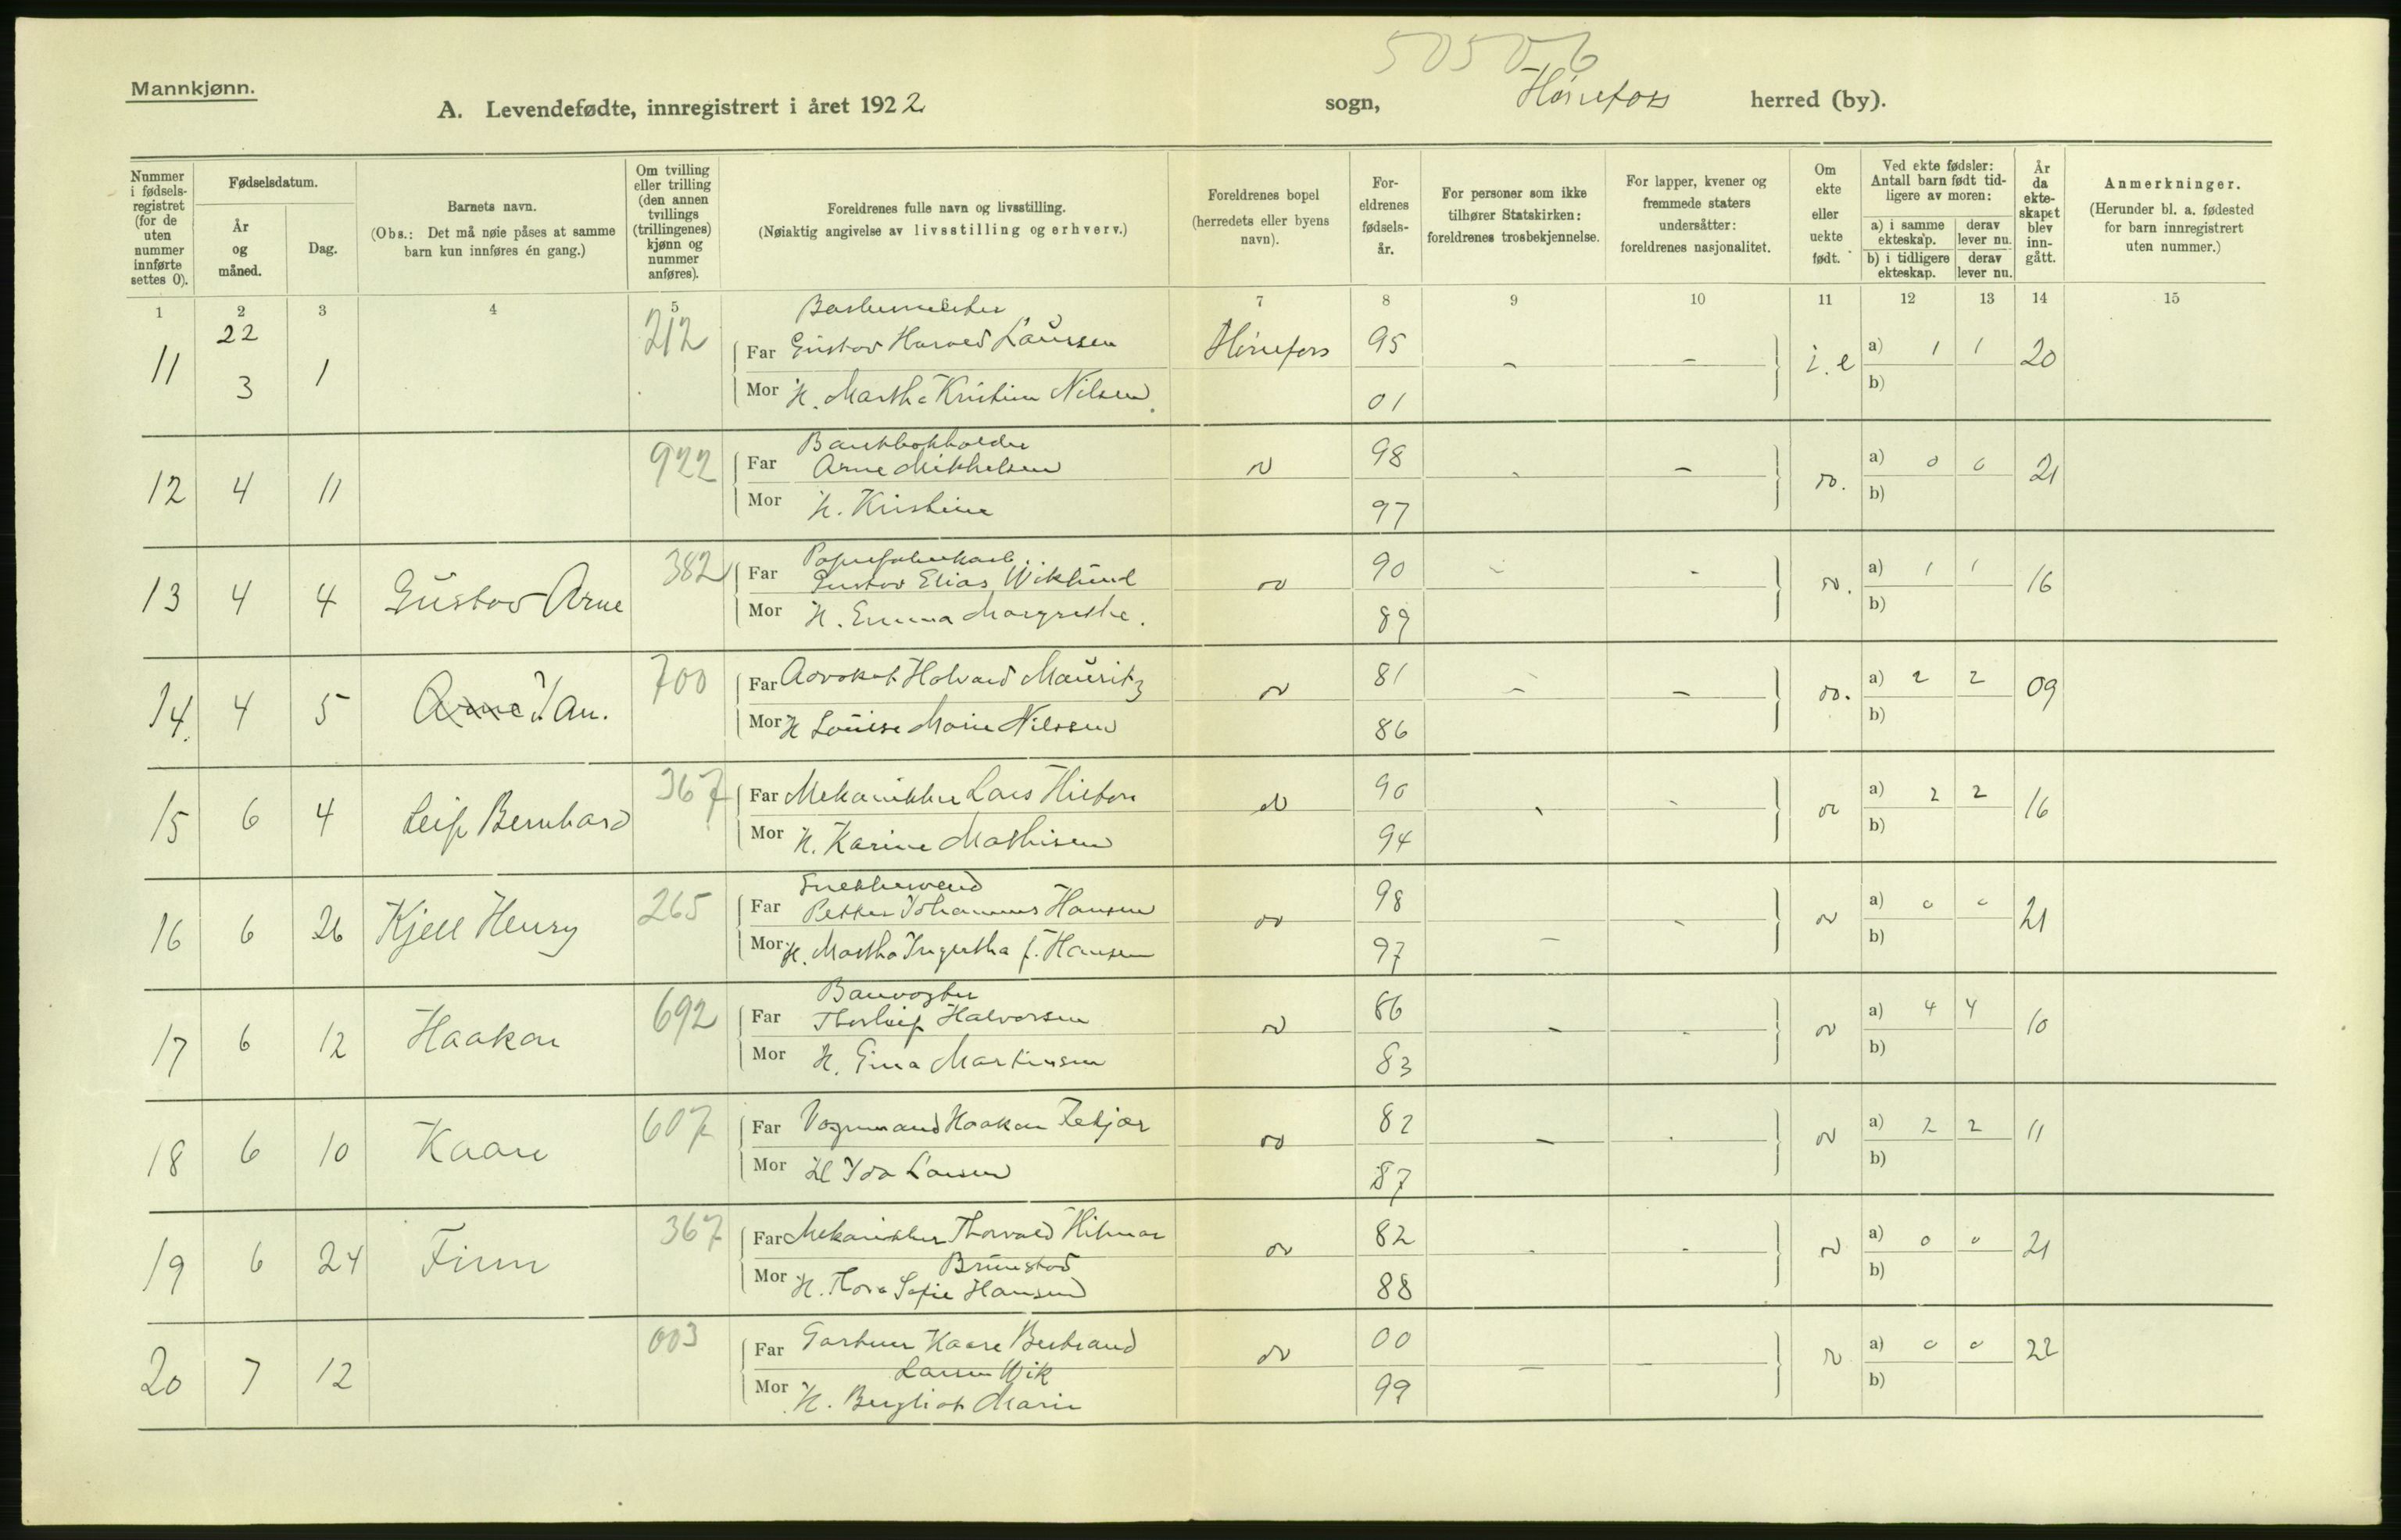 50506
Mannkjønn.
A. Levendefødte, innregistrert i året 1922 sogn, Hønefoss herred (by).
Nummer i fødselsregistret (for de uten nummer innførte settes 0).
Fødselsdatum.
År og måned.
Dag.
Barnets navn.
(Obs.: Det må nøie påses at samme barn kun innføres én gang.)
Om tvilling eller trilling (den annen tvillings (trillingenes) kjønn og nummer anføres).
Foreldrenes fulle navn og livsstilling.
(Nøiaktig angivelse av livsstilling og erhverv.)
Foreldrenes bopel (herredets eller byens navn).
For-eldrenes fødsels-år.
For personer som ikke tilhører Statskirken: foreldrenes trosbekjennelse.
For lapper, kvener og fremmede staters undersåtter: foreldrenes nasjonalitet.
Om ekte eller uekte født.
Ved ekte fødsler: Antall barn født tid-ligere av moren:
a) i samme ekteskap. derav lever nu.
b) i tidligere ekteskap. derav lever nu.
År da ekte-skapet blev inn-gått.
Anmerkninger.
(Herunder bl. a. fødested for barn innregistrert uten nummer.)
1 2 3 4 5 7 8 9 10 11 12 13 14 15
11 22 3 1 212
Far Gustav Harald Laursen Hønefoss 95 – – i.e a) 1 1 20
Mor H. Martha Kristine Nilsen 01 b)
12 4 11 922 Bankbokholder
Far Arne Mikkelsen 98 - – a) 0 0 21
Mor H. Kristine 97 b)
13 4 4 Gustav Arne 382
Far Gustav Elias Wiklund 90 - - a) 1 1 16
Mor H. Emma Margrethe. 89 b)
14. 4 5 Arne Jan. 700
Far Advokat Halvard Mauritz 81 – – a) 2 2 09
Mor H Louise Marie Nilssen 86 b)
15 6 4 Leif Bernhard 367
Far Mekanikker Lars 90 - - a) 2 2 16
Mor H. Karine Mathisen 94 b)
16 6 26 Kjell Henry 265 Snekkersvend
Far Petter Johannes Hansen 98 – - a) 0 0 21
Mor H. Martha Ingertha f. Hansen 97 b)
17 6 12 Haakon 692 Banevogter
Far Thorleif Halvorsen 86 – - a) 4 4 10
Mor H. Gina Martinsen 83 b)
18 6 10 Kaare 607
Far Vognmand Haakon 82 – - a) 2 2 11
Mor H Ida Larsen 87 b)
19 6 24 Finn 367
Far Mekanikker Thorvald Hilmar 82 - - a) 0 0 21
Brunstad
Mor H. Thora Sofie Hansen 88 b)
20 7 12 003
Far Gartner Kaare Bertrand 00 – – a) 0 0 22
Larsen Wik
Mor H. Bergliot Marie 99 b)